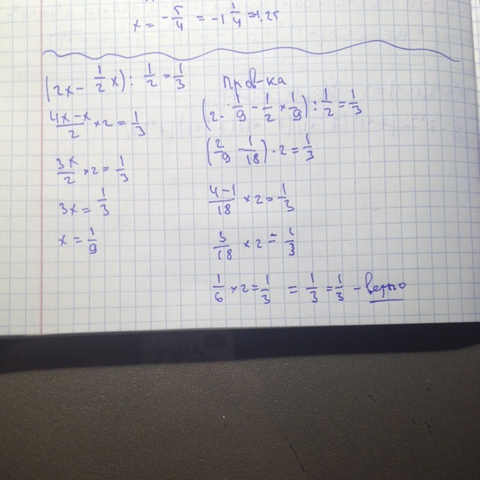 x = -5/4 = -1 1/4 = 1.25
(2x - 1/2 x) : 1/2 = 1/3
4x-x/2 × 2 = 1/3
3x/2 × 2 = 1/3
3x = 1/3
x = 1/9
Пров-ка
(2 · 1/9 - 1/2 × 1/9) : 1/2 = 1/3
(2/9 - 1/18) · 2 = 1/3
4-1/18 × 2 = 1/3
3/18 × 2 = 1/3
1/6 × 2 = 1/3 = 1/3 = 1/3 - верно